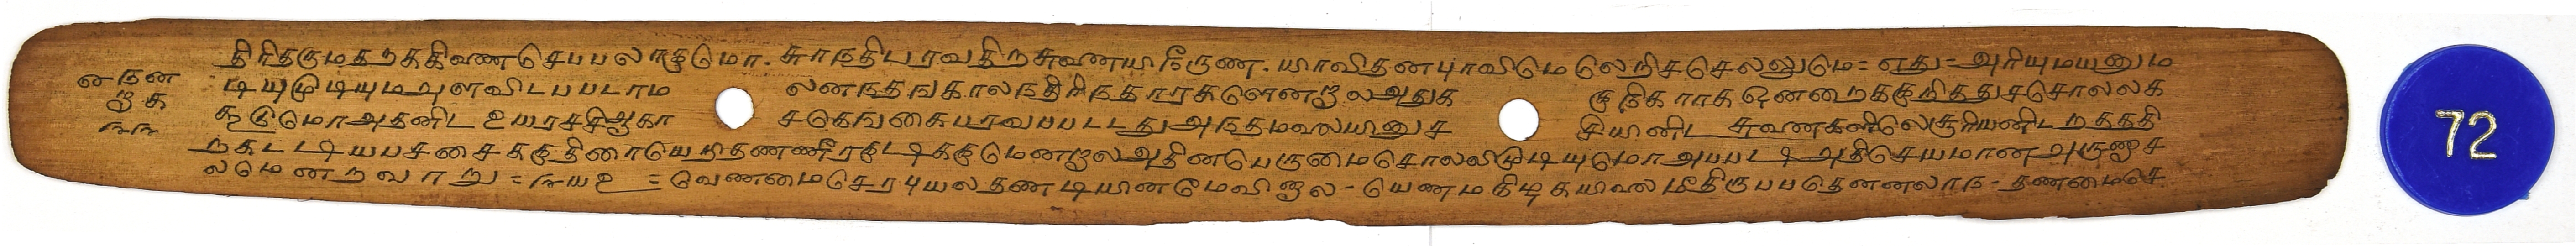 திரிதருமதறககிவணசெபபலாகுமொ. சாநதிபரவதிறசுவணயிரீருண. யாவிதனபுாவிமெலெறிசசெலலுமெ= எது= அரியுமயனும
னநன டியுமுடியுமவுளவிடபபடாம லனநதஙகாலநதிரிநதாரகளெனறால அதுக குநிகராக ஒனறைககுறிததுசசொலலக
றுக கூடுமொஅதனிட உயரசசிஆகா சகெஙகைபரவபபடடதுஅநதமலையினுச சியினிட சுவணகளிலெசூரியனிட றதததி
றகடடியபசசைககுதிரையெறிதணணீரகுடிககுமெனறால அதினபெருமைசொலலிமுடியுமொஅபபடி அதிசெயமானஅருணச
லமெனறவாறு = ௩௰உ = வெணமைசெரபுயலதணடியினமெவிறால - யெணமகிழகயிலைமீதிருபபதெனனலாந - தணமைசெ
72